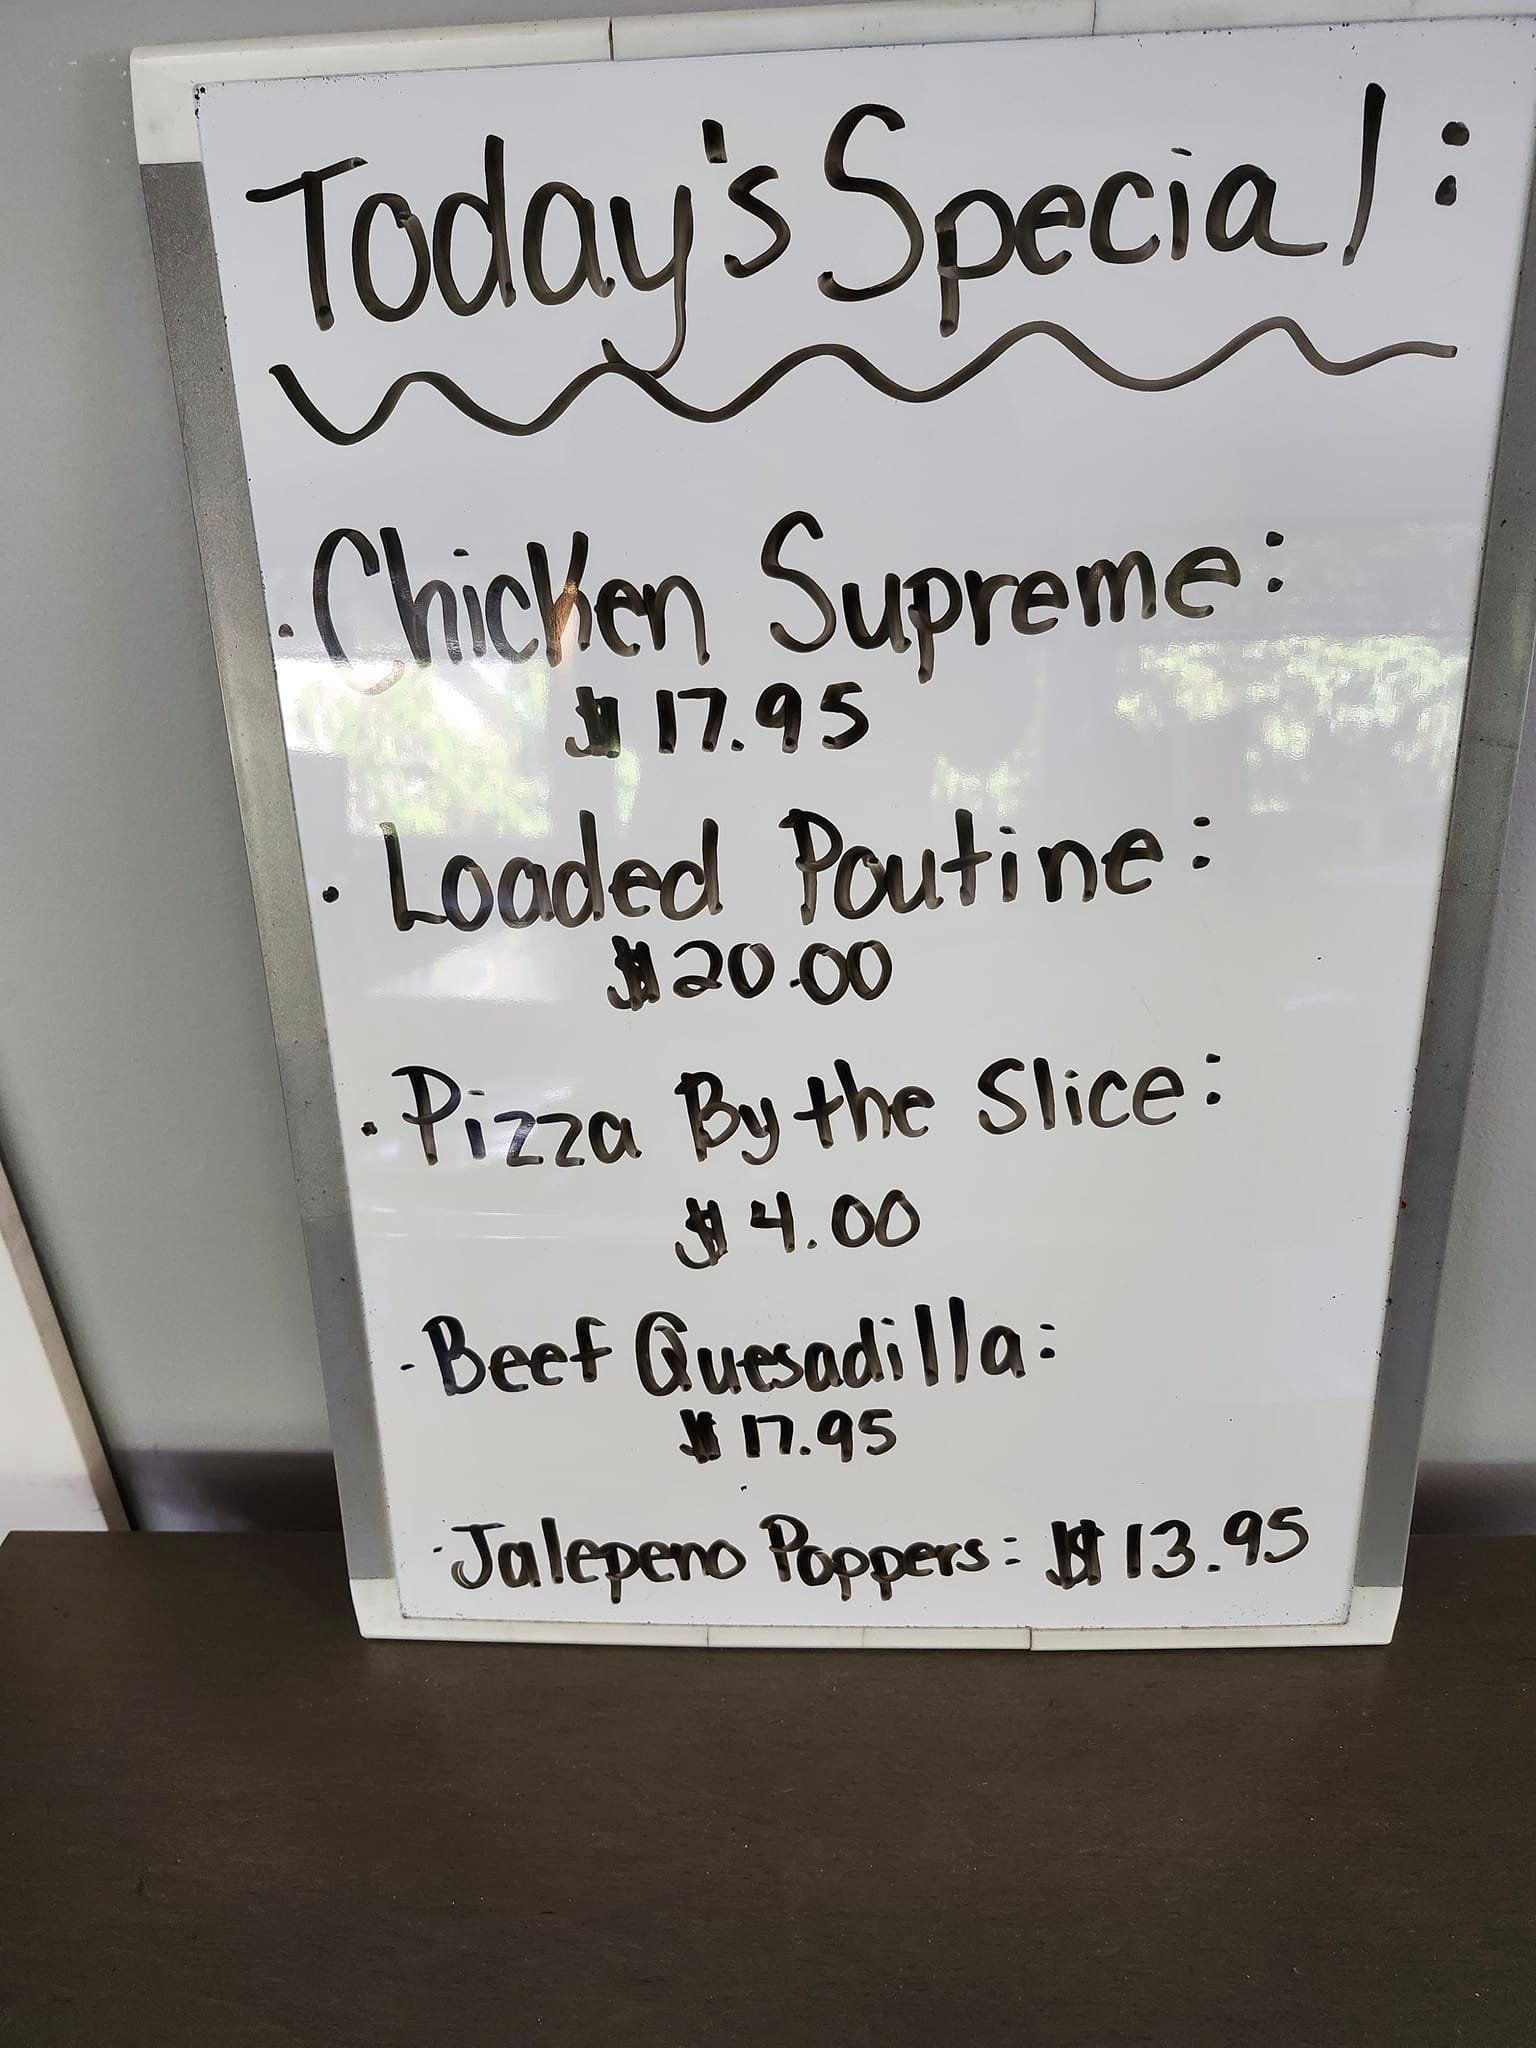 Today's Special:
· Chicken Supreme:
$17.95
· Loaded Poutine:
$20.00
· Pizza By the Slice:
$4.00
- Beef Quesadilla:
$17.95
· Jalepeno Poppers: $13.95